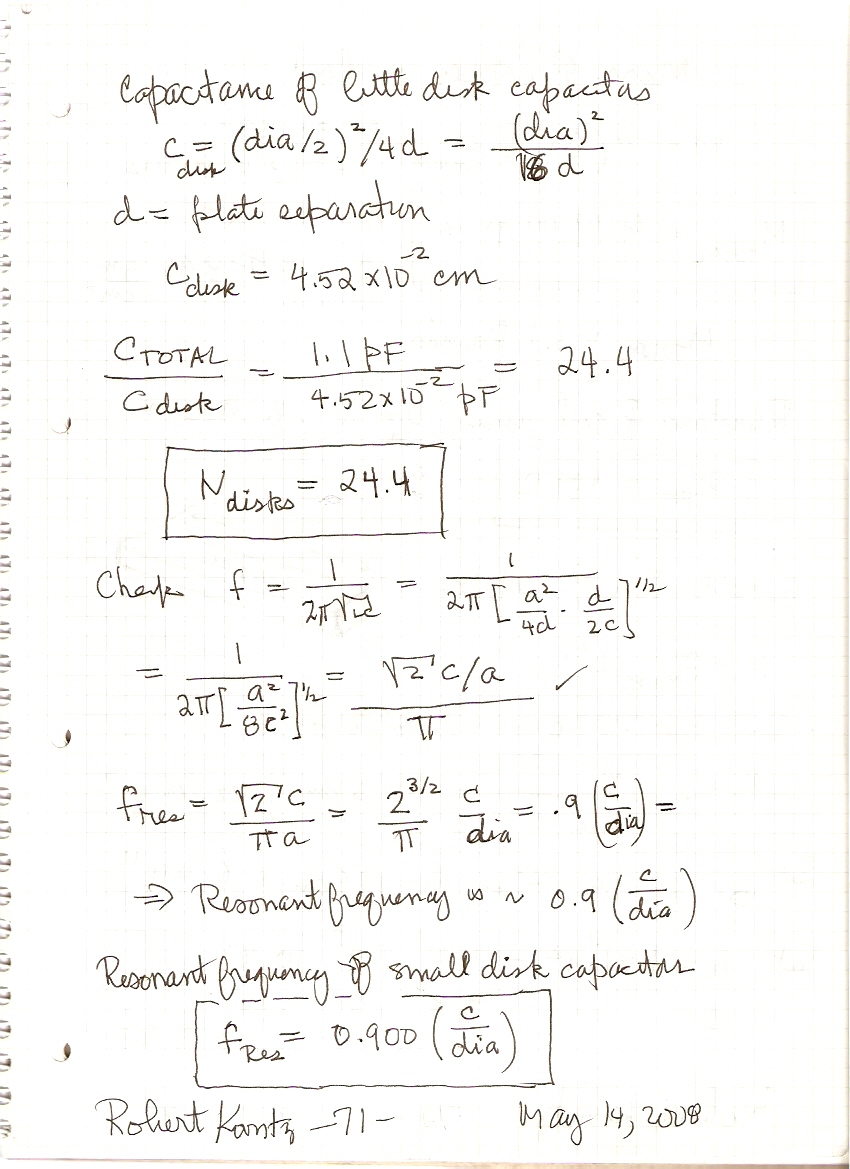 Capacitance of little disk capacitors
C_disk = (dia/2)²/4d = (dia)²/16 d
d = plate separation
C_disk = 4.52 x 10⁻² cm
C_TOTAL/C_disk = 1.1 pF/4.52x10⁻² pF = 24.4
N_disks = 24.4
Check f = 1/2π√LC = 1/2π[a²/4d · d/2c]^1/2
= 1/2π[a²/8c²]^1/2 = √2 c/a/π ✓
f_res = √2 c/πa = 2^3/2/π c/dia = .9 (c/dia) =
⇒ Resonant frequency is ~ 0.9 (c/dia)
Resonant frequency of small disk capacitor
f_Res = 0.900 (c/dia)
Robert Kantz -71- May 14, 2008